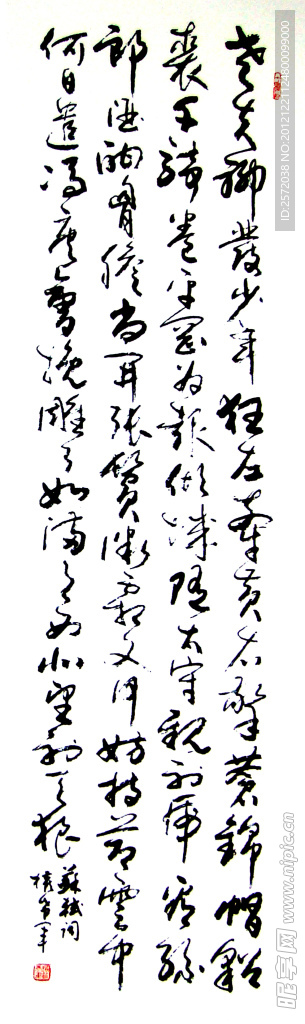 老夫聊發少年狂左牽黃右擎蒼錦帽貂
裘千騎卷平岡為報傾城隨太守親射虎看孫
郎酒酣胸膽尚開張鬢微霜又何妨持節雲中
何日遣馮唐會挽雕弓如滿月西北望射天狼
蘇軾詞
ID:2572038 NO:20121221124800099000
昵图网 www.nipic.cn